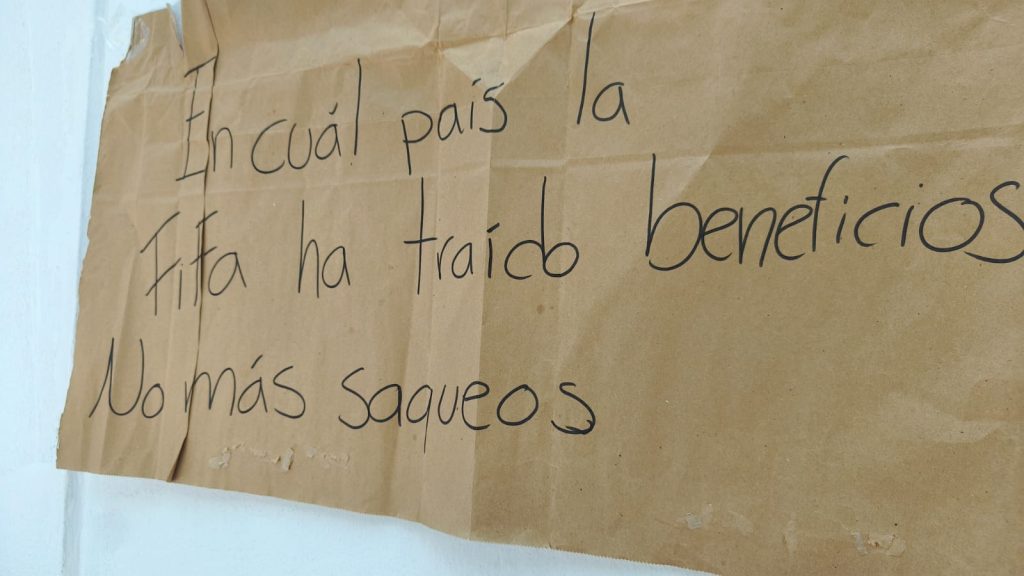 En cuál país la
Fifa ha traído beneficios
No más saqueos